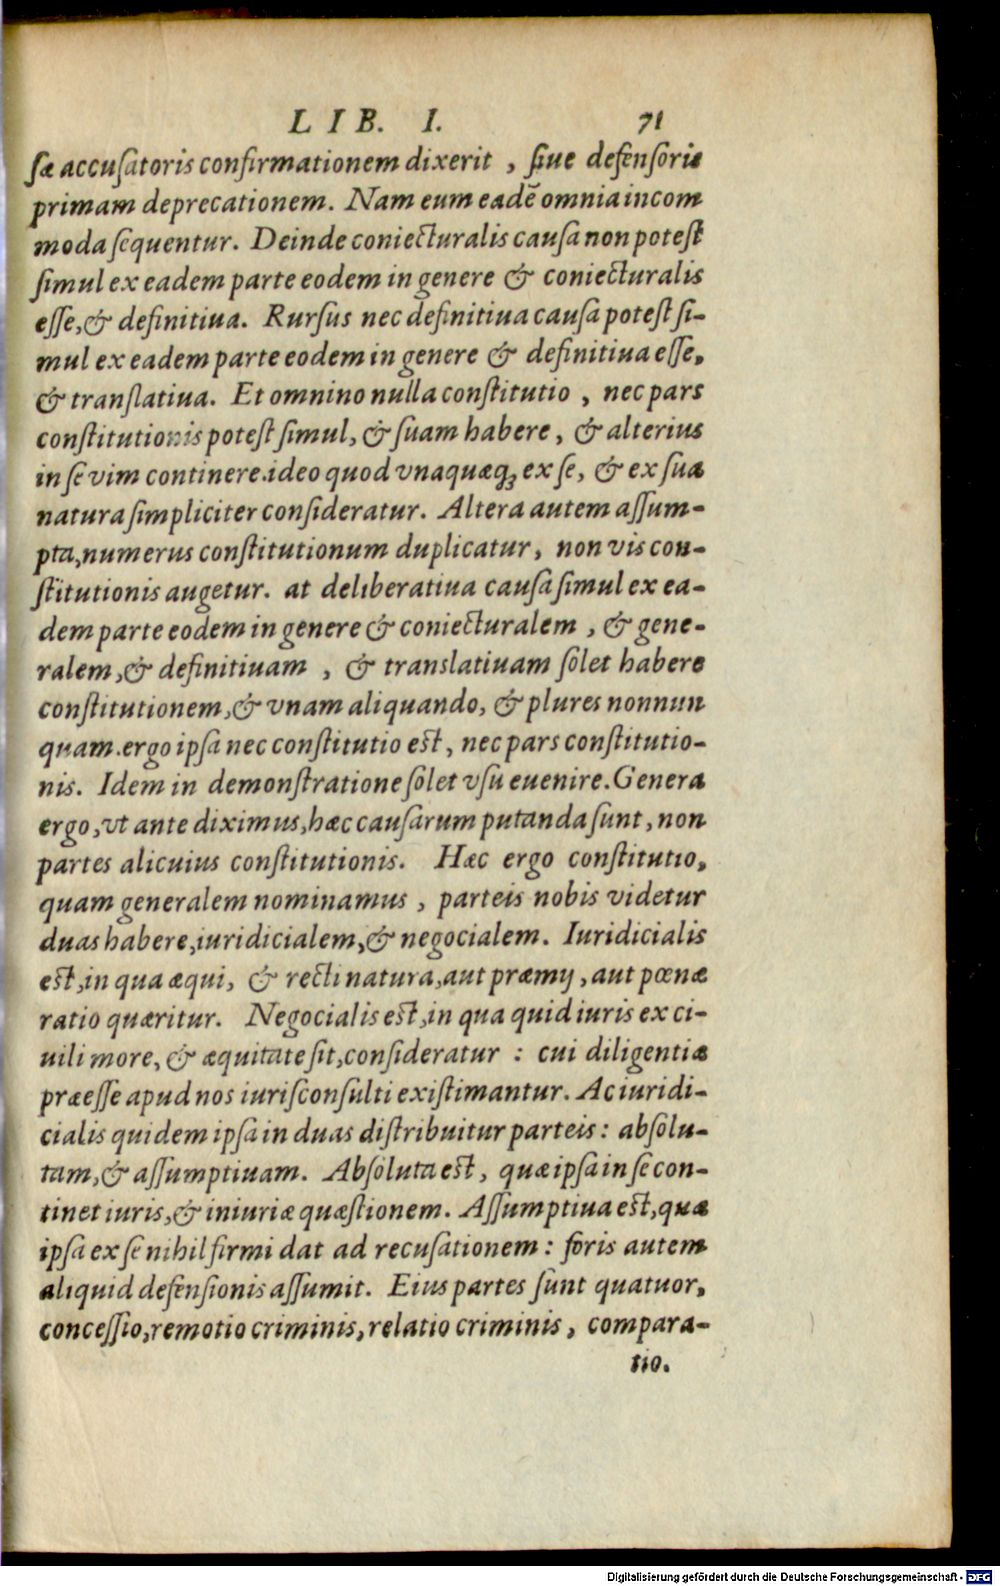 LIB. I. 71
sæ accusatoris confirmationem dixerit , siue defensoris
primam deprecationem. Nam eum eadē omnia incom
moda sequentur. Deinde coniecturalis causa non potest
simul ex eadem parte eodem in genere & coniecturalis
esse, & definitiua. Rursus nec definitiua causa potest si-
mul ex eadem parte eodem in genere & definitiua esse,
& translatiua. Et omnino nulla constitutio , nec pars
constitutionis potest simul, & suam habere, & alterius
in se vim continere. ideo quod vnaquæq; ex se, & ex sua
natura simpliciter consideratur. Altera autem assum-
pta, numerus constitutionum duplicatur, non vis con-
stitutionis augetur. at deliberatiua causa simul ex ea-
dem parte eodem in genere & coniecturalem , & gene-
ralem, & definitiuam , & translatiuam solet habere
constitutionem, & vnam aliquando, & plures nonnun
quam. ergo ipsa nec constitutio est, nec pars constitutio-
nis. Idem in demonstratione solet vsu euenire. Genera
ergo, vt ante diximus, hæc causarum putanda sunt, non
partes alicuius constitutionis. Hæc ergo constitutio,
quam generalem nominamus , parteis nobis videtur
duas habere, iuridicialem, & negocialem. Iuridicialis
est, in qua æqui, & recti natura, aut præmij, aut pœnæ
ratio quæritur. Negocialis est, in qua quid iuris ex ci-
uili more, & æquitate sit, consideratur : cui diligentiæ
præesse apud nos iurisconsulti existimantur. Ac iuridi-
cialis quidem ipsa in duas distribuitur parteis : absolu-
tam, & assumptiuam. Absoluta est, quæ ipsa in se con-
tinet iuris, & iniuriæ quæstionem. Assumptiua est, quæ
ipsa ex se nihil firmi dat ad recusationem : foris autem
aliquid defensionis assumit. Eius partes sunt quatuor,
concessio, remotio criminis, relatio criminis, compara-
tio.
Digitalisierung gefördert durch die Deutsche Forschungsgemeinschaft - DFG